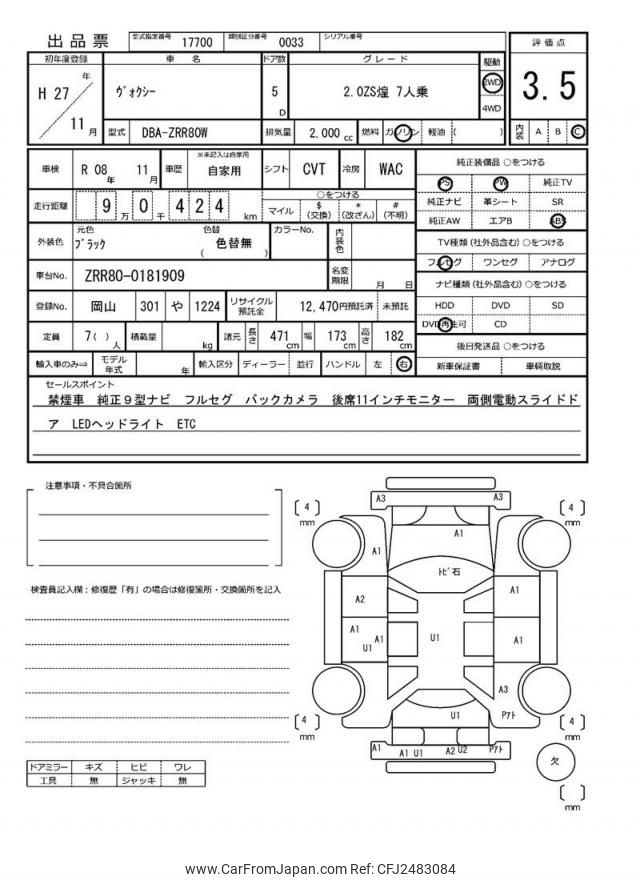 出品票 型式指定番号 17700 類別区分番号 0033 シリアル番号
評価点
3.5
内装 A B C
初年度登録 車名 ドア数 グレード 駆動
H 27 年 11 月
ヴォクシー
5 D
2.0ZS煌 7人乗
2WD
4WD
型式 DBA-ZRR80W 排気量 2,000 cc 燃料 ガソリン 軽油 ( )
車検 R 08 年 11 月 車歴 ※未記入は自家用 自家用 シフト CVT 冷房 WAC
走行距離 9 万 0 千 4 2 4 km
○をつける
マイル $ (交換) * (改ざん) # (不明)
外装色 元色 ブラック 色替 ( 色替無 ) カラーNo. 内装色
車台No. ZRR80-0181909 名変期限 月 日
登録No. 岡山 301 や 1224 リサイクル預託金 12,470円預託済 未預託
定員 7( ) 人 積載量 kg 諸元 長さ 471 cm 幅 173 cm 高さ 182 cm
輸入車のみ⇒ モデル年式 年 輸入区分 ディーラー 並行 ハンドル 左 右
純正装備品 ○をつける
PS PW 純正TV
純正ナビ 革シート SR
純正AW エアB ABS
TV種類(社外品含む)○をつける
フルセグ ワンセグ アナログ
ナビ種類(社外品含む)○をつける
HDD DVD SD
DVD再生可 CD
後日発送品 ○をつける
新車保証書 車輌取説
セールスポイント
禁煙車 純正9型ナビ フルセグ バックカメラ 後席11インチモニター 両側電動スライドド
ア LEDヘッドライト ETC
注意事項・不具合箇所
検査員記入欄:修復歴「有」の場合は修復箇所・交換箇所を記入
ドアミラー キズ ヒビ ワレ
工具 無 ジャッキ 無
A3 A3
[ 4 ] mm
[ 4 ] mm
A1
A1
トビ石
A2
A1
A1
A1
U1
U1
A1
A3
U1
Pアト
[ 4 ] mm
[ 4 ] mm
A1 A1 U1 A2 U2 Pアト
欠
[ ] mm
www.CarFromJapan.com Ref: CFJ2483084